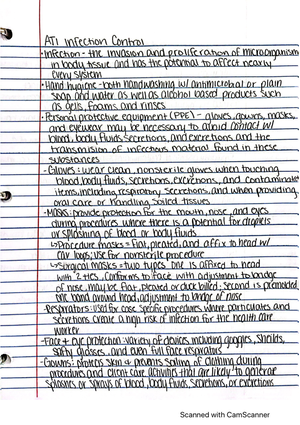 ATI Infection Control
•Infection - the invasion and proliferation of microorganism
in body tissue and has the potential to affect nearly
every system
•Hand hygiene - both handwashing w/ antimicrobial or plain
soap and water as well as alcohol based products such
as gels, foams and rinses
•Personal protective equipment (PPE) - gloves, gowns, masks,
and eyewear may be necessary to avoid contact w/
blood, body fluids, secretions, and excretions and the
transmission of infectious material found in these
substances
-Gloves: wear clean, nonsterile gloves when touching
blood, body fluids, secretions, excretions, and contaminated
items, including respiratory secretions, and when providing
oral care or handling soiled tissues
-Masks: provide protection for the mouth, nose, and eyes
during procedures where there is a potential for droplets
or splashing of blood or body fluids
↳Procedure masks = flat, pleated, and affix to head w/
ear loops; use for nonsterile procedure
↳Surgical masks = two types. one is affixed to head
with 2 ties. conforms to face with adjustment to bridge
of nose, may be flat, pleated or duck billed; second is premolded,
one band around head, adjustment to bridge of nose
-Respirators: used for case specific procedures where particulates and
secretions create a high risk of infection for the health care
worker
-Face + eye protection: variety of devices including goggles, shields,
safty glasses, and even full face respirators
-Gowns: protects skin + prevents soiling of clothing during
procedures and client care activities that are likely to generate
splashes or sprays of blood, body fluids, secretions, or excretions
Scanned with CamScanner